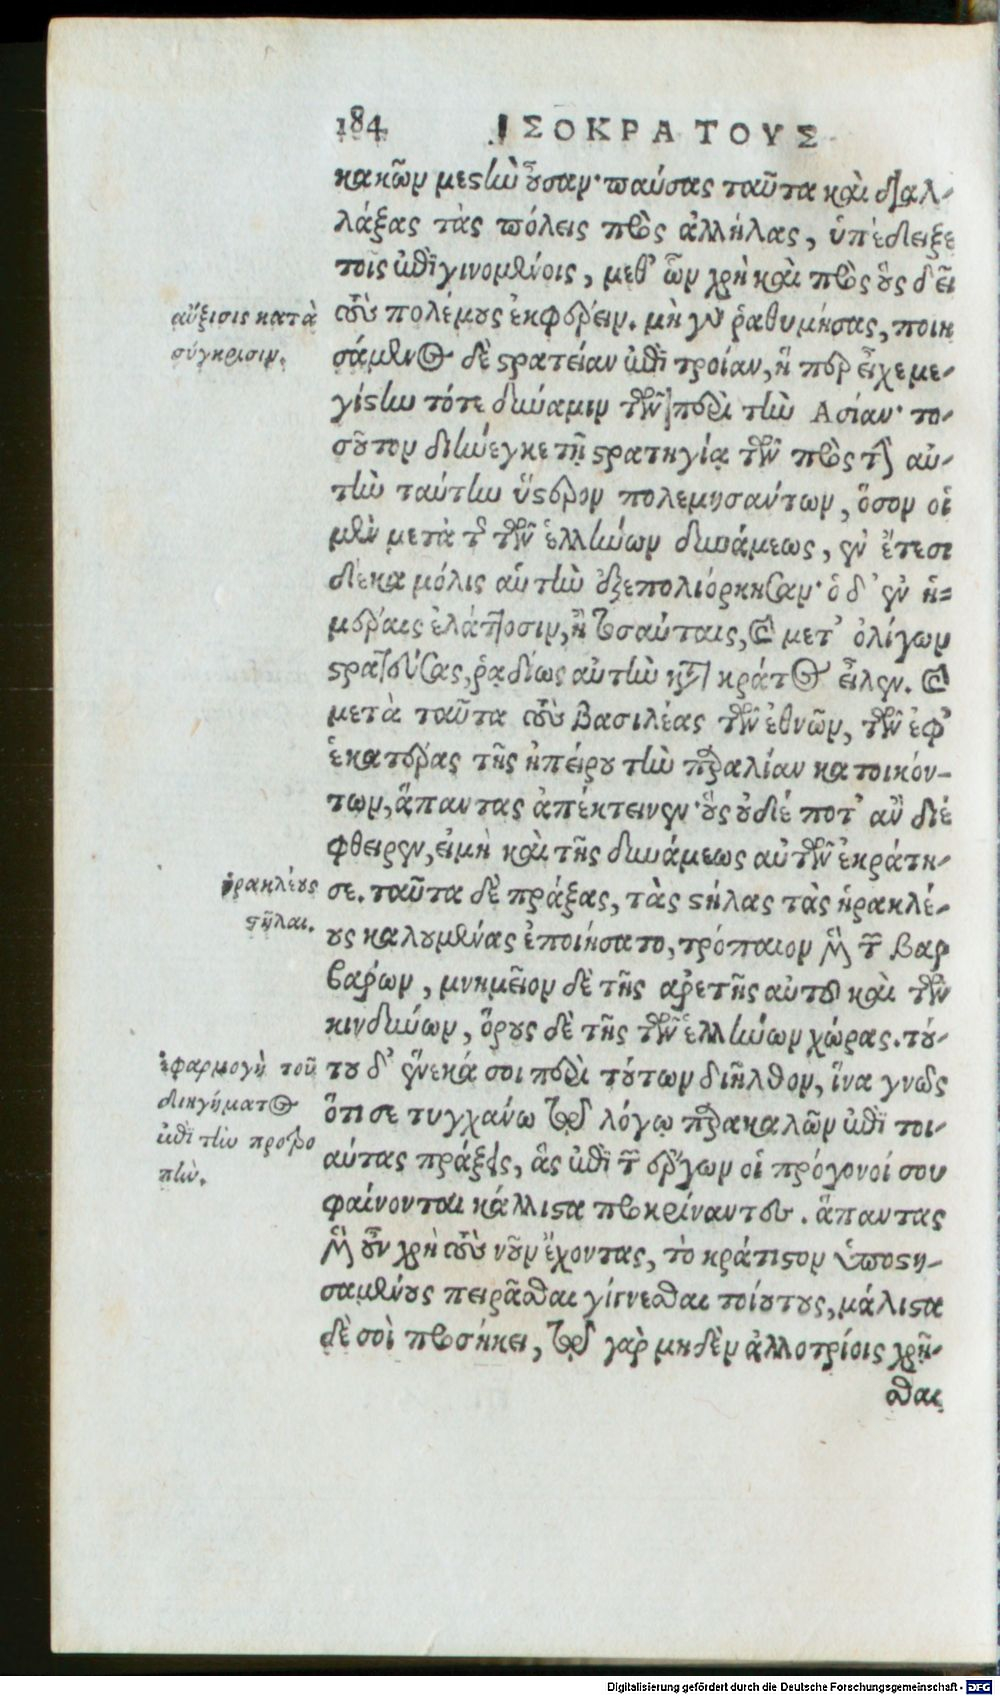 184 ΙΣΟΚΡΑΤΟΥΣ
κακῶν μεστὴν οὖσαν· παύσας ταῦτα καὶ διαλ-
λάξας τὰς πόλεις πρὸς ἀλλήλας, ὑπέδειξε
τοῖς ἐπιγινομένοις, μεθ' ὧν χρὴ καὶ πρὸς οὓς δεῖ
αὔξισις κατὰ
σύγκρισιν.
τοὺς πολέμους ἐκφέρειν. μὴ γὰρ ῥαθυμήσας, ποιη
σάμενος δὲ στρατείαν ἐπὶ τροίαν, ἥ περ εἶχε με-
γίστην τότε δύναμιν τῶν περὶ τὴν Ασίαν· το-
σοῦτον διήνεγκε τῇ στρατηγίᾳ τῶν πρὸς τὴν αὐ-
τὴν ταύτην ὕστερον πολεμησάντων, ὅσον οἱ
μὲν μετὰ τῆς τῶν ἑλλήνων δυνάμεως, ἐν ἔτεσι
δέκα μόλις αὐτὴν ἐξεπολιόρκησαν· ὁ δ' ἐν ἡ-
μέραις ἐλάττοσιν, ἢ τοσαύταις, καὶ μετ' ὀλίγων
στρατεύσας, ῥᾳδίως αὐτὴν κατὰ κράτος εἷλεν. καὶ
μετὰ ταῦτα τοὺς βασιλέας τῶν ἐθνῶν, τῶν ἐφ'
ἑκατέρας τῆς ἠπείρου τὴν παραλίαν κατοικόν-
των, ἅπαντας ἀπέκτεινεν· οὓς οὐδέ ποτ' ἂν διέ
φθειρεν, εἰ μὴ καὶ τῆς δυνάμεως αὐτῶν ἐκράτη-
ἡρακλέους
στῆλαι.
σε. ταῦτα δὲ πράξας, τὰς στήλας τὰς ἡρακλέ-
ους καλουμένας ἐποιήσατο, τρόπαιον μὲν τῶν βαρ
βάρων, μνημεῖον δὲ τῆς ἀρετῆς αὐτοῦ καὶ τῶν
κινδύνων, ὅρους δὲ τῆς τῶν ἑλλήνων χώρας. τού-
ἐφαρμογὴ τοῦ
διηγήματος
ἐπὶ τὴν προτρο
πήν.
του δ' ἕνεκά σοι περὶ τούτων διῆλθον, ἵνα γνῷς
ὅτι σε τυγχάνω τῷ λόγῳ παρακαλῶν ἐπὶ τοι-
αύτας πράξεις, ἃς ἐπὶ τῶν ἔργων οἱ πρόγονοί σου
φαίνονται κάλλιστα προκρίναντες. ἅπαντας
μὲν οὖν χρὴ τοὺς νοῦν ἔχοντας, τὸ κράτιστον ὑποστη-
σαμένους πειρᾶσθαι γίγνεσθαι τοιούτους, μάλιστα
δὲ σοὶ προσήκει, τῷ γὰρ μηδὲν ἀλλοτρίοις χρῆ-
σθαι
Digitalisierung gefördert durch die Deutsche Forschungsgemeinschaft - DFG